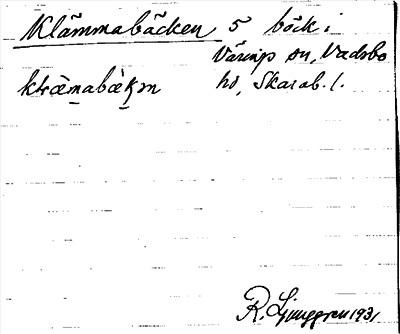 Klämmabäcken 5 bäck i
Väring sn, Vadsbo
hd, Skarab. l.
klæmabækɱ
R. Ljunggren 1931